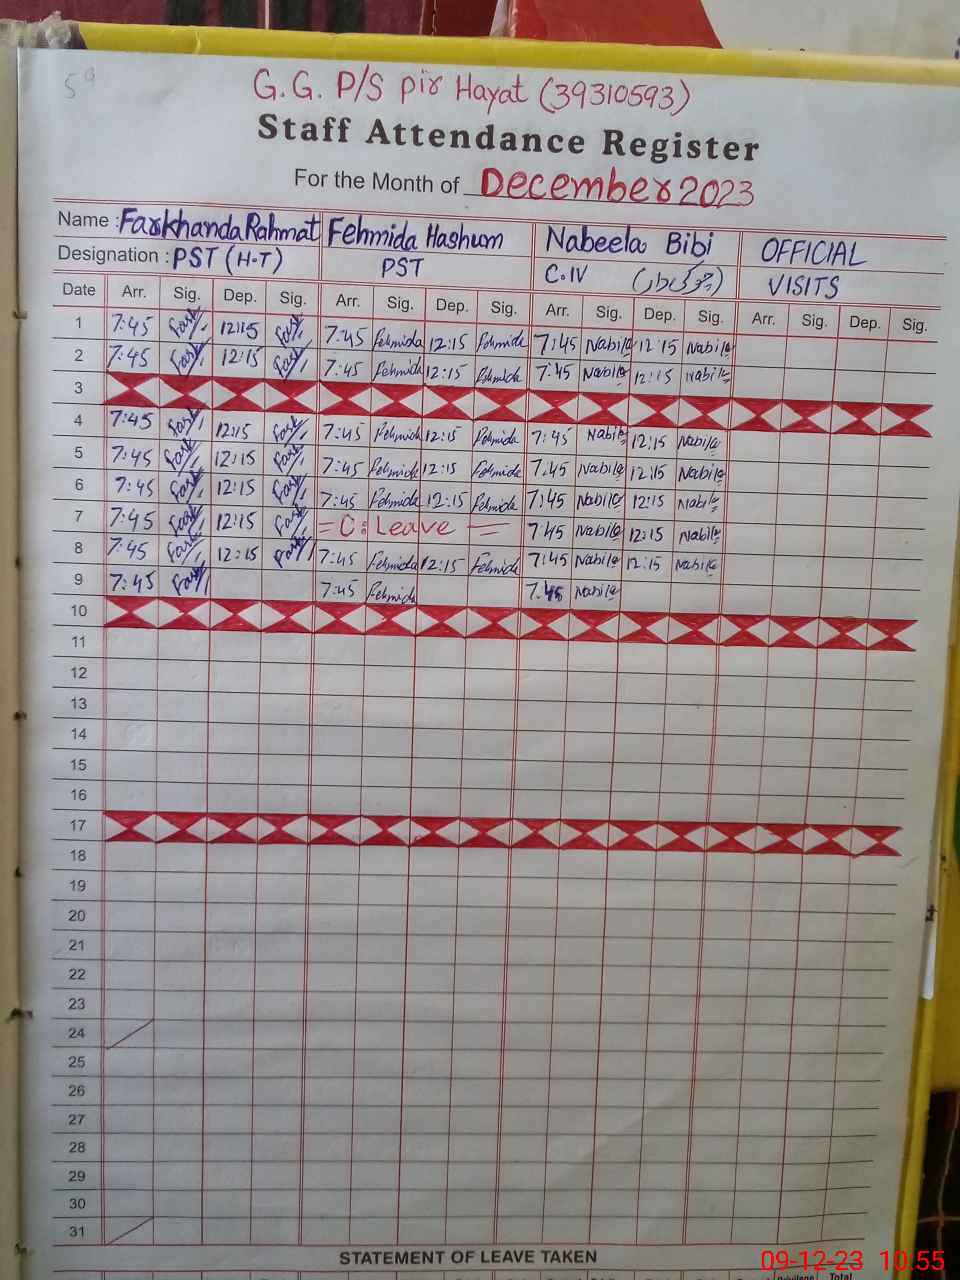 59
G.G. P/S pir Hayat (39310593)
Staff Attendance Register
For the Month of December 2023
Name : Farkhanda Rahmat Fehmida Hashum Nabeela Bibi OFFICIAL
Designation : PST (H.T) PST C.IV VISITS
Date Arr. Sig. Dep. Sig. Arr. Sig. Dep. Sig. Arr. Sig. Dep. Sig. Arr. Sig. Dep. Sig.
1 7:45 Fark 12:15 Fark 7:45 Fehmida 12:15 Fehmida 7:45 Nabila 12:15 Nabila
2 7:45 Fark 12:15 Fark 7:45 Fehmida 12:15 Fehmida 7:45 Nabila 12:15 Nabila
3
4 7:45 Fark 12:15 Fark 7:45 Fehmida 12:15 Fehmida 7:45 Nabila 12:15 Nabila
5 7:45 Fark 12:15 Fark 7:45 Fehmida 12:15 Fehmida 7.45 Nabila 12:15 Nabila
6 7:45 Fark 12:15 Fark 7:45 Fehmida 12:15 Fehmida 7:45 Nabila 12:15 Nabila
7 7:45 Fark 12:15 Fark = C:Leave = 7.45 Nabila 12:15 Nabila
8 7:45 Fark 12:15 Fark 7:45 Fehmida 12:15 Fehmida 7:45 Nabila 12:15 Nabila
9 7:45 Fark 7:45 Fehmida 7.45 Nabila
10
11
12
13
14
15
16
17
18
19
20
21
22
23
24
25
26
27
28
29
30
31
STATEMENT OF LEAVE TAKEN
Privilege Total
09-12-23 10:55